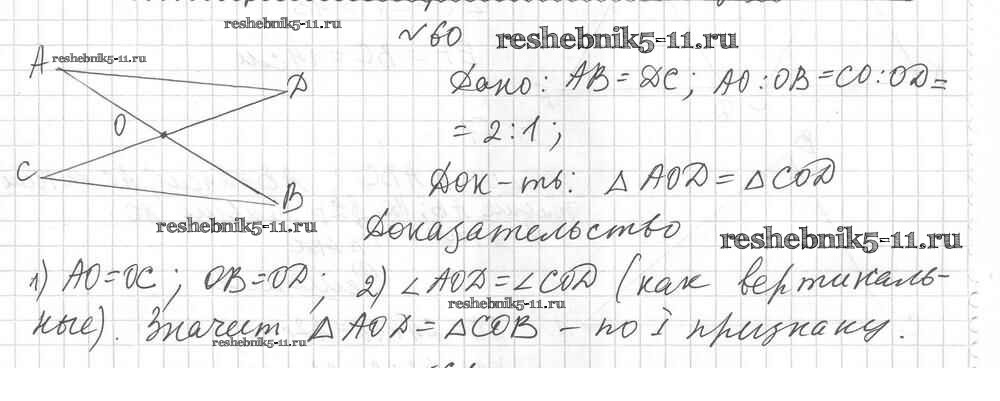 reshebnik5-11.ru
№60 reshebnik5-11.ru
A reshebnik5-11.ru
Дано: AB = DC; AO:OB = CO:OD =
D
O
= 2:1;
C
Док-ть: △ AOD = △ COD
B
reshebnik5-11.ru
Доказательство
reshebnik5-11.ru
1) AO=OC; OB=OD; 2) ∠AOD=∠COD (как вертикаль-
reshebnik5-11.ru
ные). Значит, △ AOD = △COB – по I признаку.
reshebnik5-11.ru